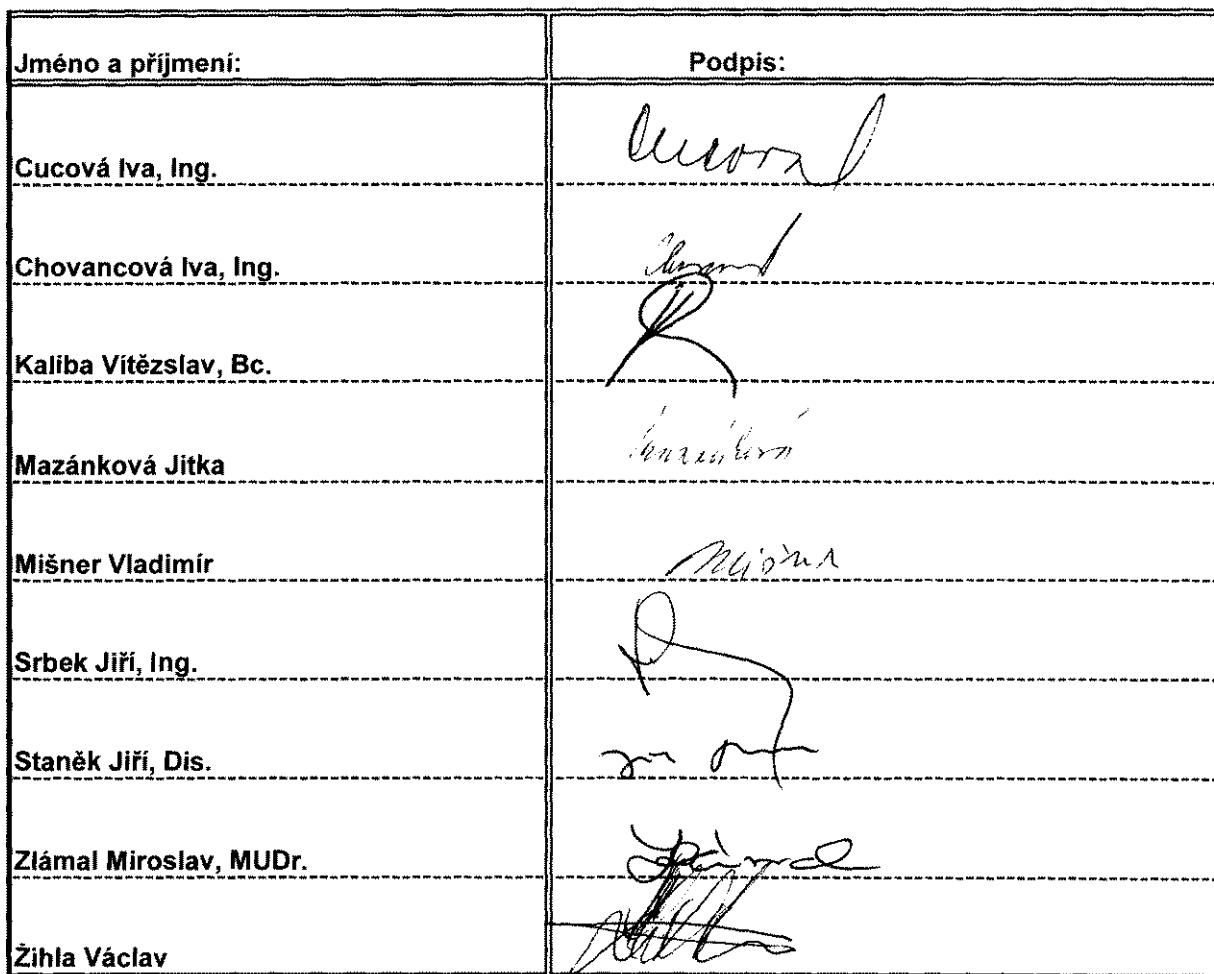 Jméno a příjmení: Podpis:
Cucová Iva, Ing. Cucová
Chovancová Iva, Ing.
Kaliba Vítězslav, Bc.
Mazánková Jitka Mazánková
Mišner Vladimír Mišner
Srbek Jiří, Ing.
Staněk Jiří, Dis.
Zlámal Miroslav, MUDr.
Žihla Václav